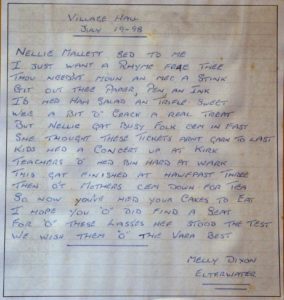 VILLAGE HALL
JULY 19-98
NELLIE MALLETT SED TO ME
I JUST WANT A RHYME FRAE THEE
THOU NEEDNT MOUN AN MEC A STINK
GIT OUT THEE PAPER, PEN AN INK
I'D HED HAM SALAD AN TRIFLE SWEET
WEB A BIT O' CRACK A REAL TREAT
BUT NELLIE GAT BUSY FOLK CEM IN FAST
SHE THOUGHT THESE TICKETS ARNT GARN TO LAST
KIDS HED A CONCERT UP AT KIRK
TEACHERS 'D' HED BIN HARD AT WARK
THIS GAT FINISHED AT HAWFPAST THREE
THEN O'T MOTHERS CEM DOWN FOR TEA
SO NOW YOU'VE HED YOUR CAKES TO EAT
I HOPE YOU 'O' DID FIND A SEAT
FOR 'O' THESE LASSES HEV STOOD THE TEST
WE WISH THEM "O" THE VARA BEST
MELLY DIXON
ELTERWATER